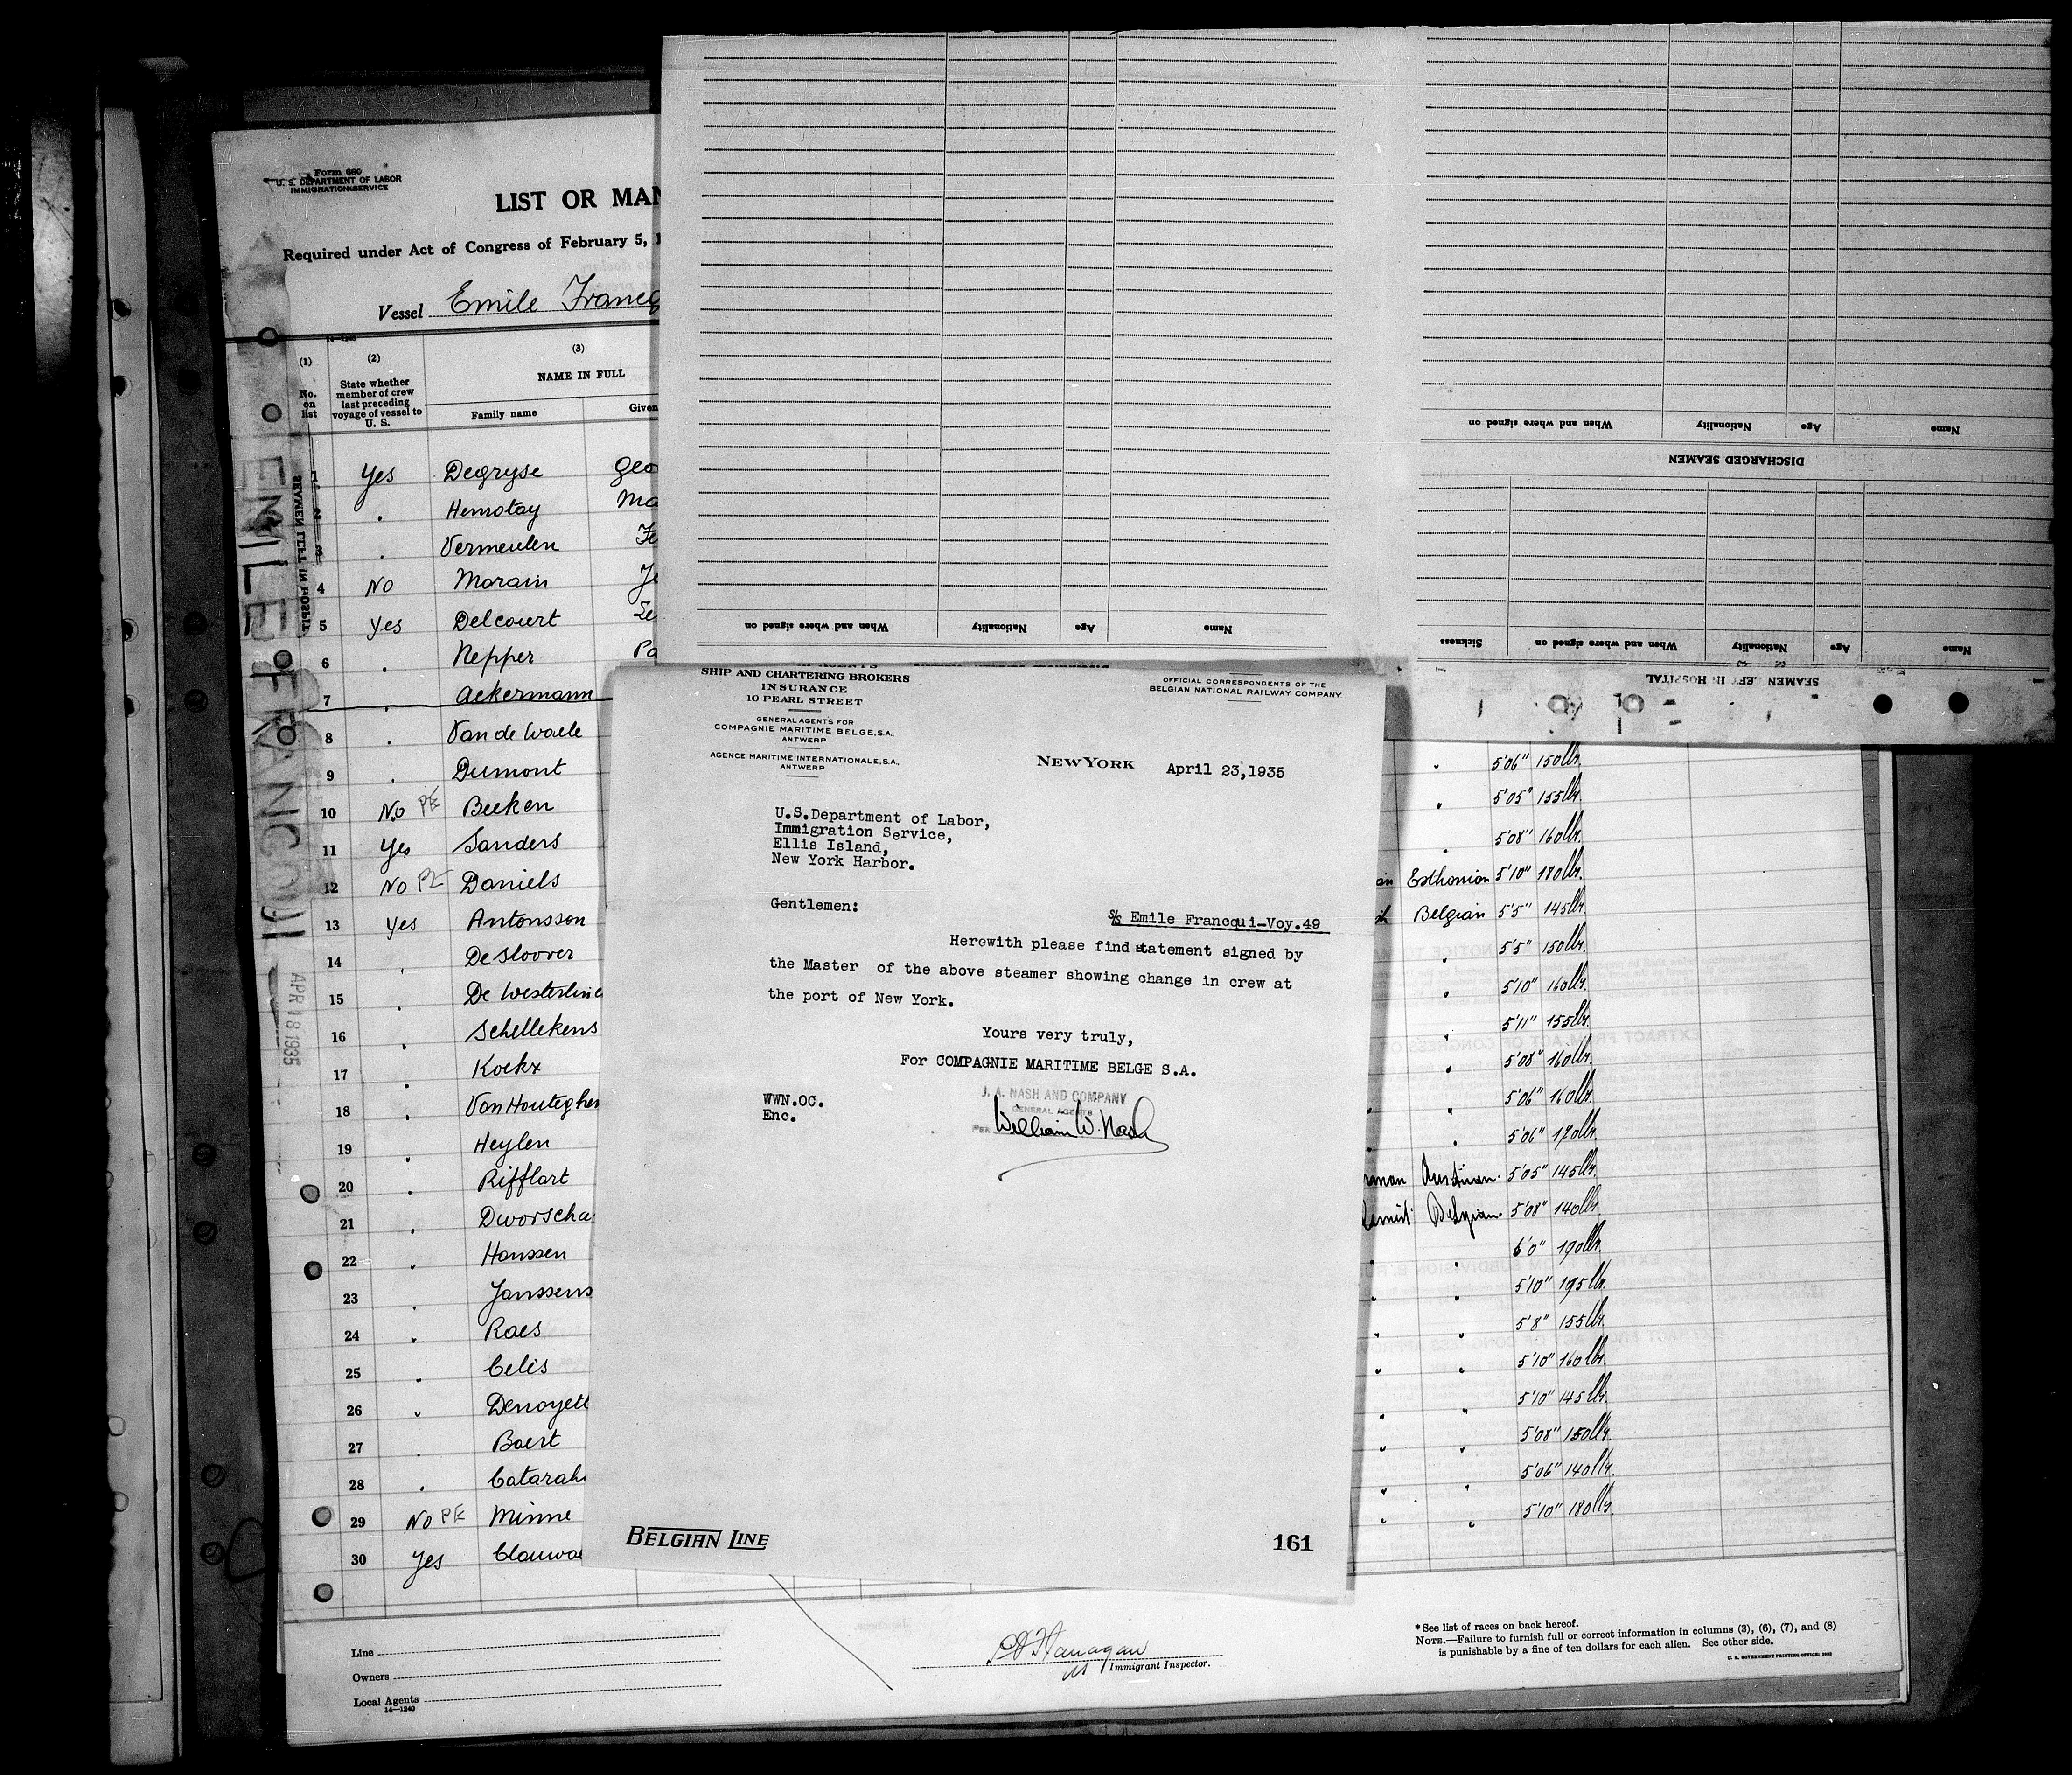 Form 680
U. S. DEPARTMENT OF LABOR
IMMIGRATION SERVICE
LIST OR MAN
Required under Act of Congress of February 5, 1
Vessel Emile Francq
(1)
No. on list
(2)
State whether member of crew last preceding voyage of vessel to U. S.
(3)
NAME IN FULL
Family name
Given
1 Yes Degryse Geo
2 " Hemotay Ma
3 " Vermeulen Fe
4 No Morain Je
5 Yes Delcourt
6 " Nepper Pa
7 " Ackermann
8 " Van de Waele
9 " Dumont
10 No PE Beeken
11 Yes Sanders
12 No PE Daniels
13 Yes Antonsson
14 " De Sloover
15 " De Westerlinc
16 " Schellekens
17 " Kockx
18 " Van Houteghem
19 " Heylen
20 " Rifflart
21 " Dworscha
22 " Hanssen
23 " Janssens
24 " Raes
25 " Celis
26 " Denoyett
27 " Baert
28 " Catarah
29 No PE Minne
30 Yes Clauwa
Line
Owners
Local Agents
14—1240
EMILE FRANCQUI
APR 18 1935
SEAMEN LEFT IN HOSPIT
Name
Age
Nationality
When and where signed on
Name
Age
Nationality
When and where signed on
DISCHARGED SEAMEN
Name
Age
Nationality
When and where signed on
Sickness
SEAMEN LEFT IN HOSPITAL
SHIP AND CHARTERING BROKERS
INSURANCE
10 PEARL STREET
GENERAL AGENTS FOR
COMPAGNIE MARITIME BELGE, S.A.,
ANTWERP
AGENCE MARITIME INTERNATIONALE, S.A.,
ANTWERP
OFFICIAL CORRESPONDENTS OF THE
BELGIAN NATIONAL RAILWAY COMPANY
NEW YORK April 23,1935
U.S.Department of Labor,
Immigration Service,
Ellis Island,
New York Harbor.
Gentlemen:
S/S Emile Francqui-Voy.49
Herewith please find statement signed by
the Master of the above steamer showing change in crew at
the port of New York.
Yours very truly,
For COMPAGNIE MARITIME BELGE S.A.
J. A. NASH AND COMPANY
GENERAL AGENTS
PER William W. Nash
WWN.OC.
Enc.
BELGIAN LINE
161
" 5'06" 150lbs.
" 5'05" 155lbs.
" 5'08" 160lbs.
an Esthonian 5'10" 180lbs.
sh Belgian 5'5" 145lbs.
" 5'5" 150lbs.
" 5'10" 160lbs.
" 5'11" 155lbs.
" 5'08" 160lbs.
" " 5'06" 160lbs.
" " 5'06" 170lbs.
rman Austrian 5'05" 145lbs.
lemish Belgian 5'08" 140lbs.
" " 6'0" 190lbs.
" " 5'10" 195lbs.
" " 5'8" 155lbs.
" " 5'10" 160lbs.
" " 5'10" 145lbs.
" " 5'08" 150lbs.
" " 5'06" 140lbs.
" " 5'10" 180lbs.
Immigrant Inspector.
*See list of races on back hereof.
NOTE.—Failure to furnish full or correct information in columns (3), (6), (7), and (8)
is punishable by a fine of ten dollars for each alien. See other side.
U. S. GOVERNMENT PRINTING OFFICE: